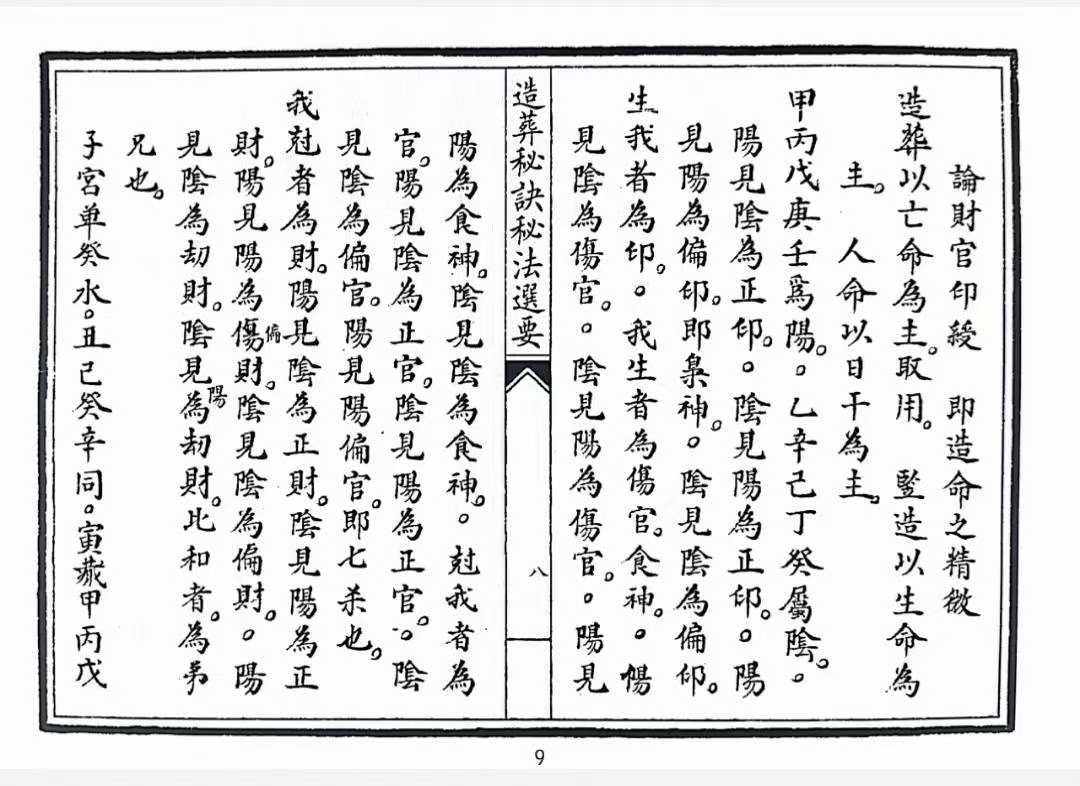 論財官印綬　即造命之精微
造葬以亡命為主。取用。　豎造以生命為
主。　人命以日干為主。
甲丙戊庚壬爲陽。。乙辛己丁癸屬陰。。
陽見陰為正印。。陰見陽為正印。。陽
見陽為偏印。即梟神。。陰見陰為偏印。
生我者為印。。我生者為傷官。食神。。陽
見陰為傷官。。陰見陽為傷官。。陽見
造葬秘訣秘法選要
八
陽為食神。陰見陰為食神。。尅我者為
官。陽見陰為正官。陰見陽為正官。。陰
見陰為偏官。陽見陽偏官。即七杀也。
我尅者為財。陽見陰為正財。陰見陽為正
財。陽見陽為傷偏財。陰見陰為偏財。。陽
見陰為刧財。陰見陽為刧財。比和者。為弟
兄也。
子宮单癸水。丑己癸辛同。寅藏甲丙戊
9